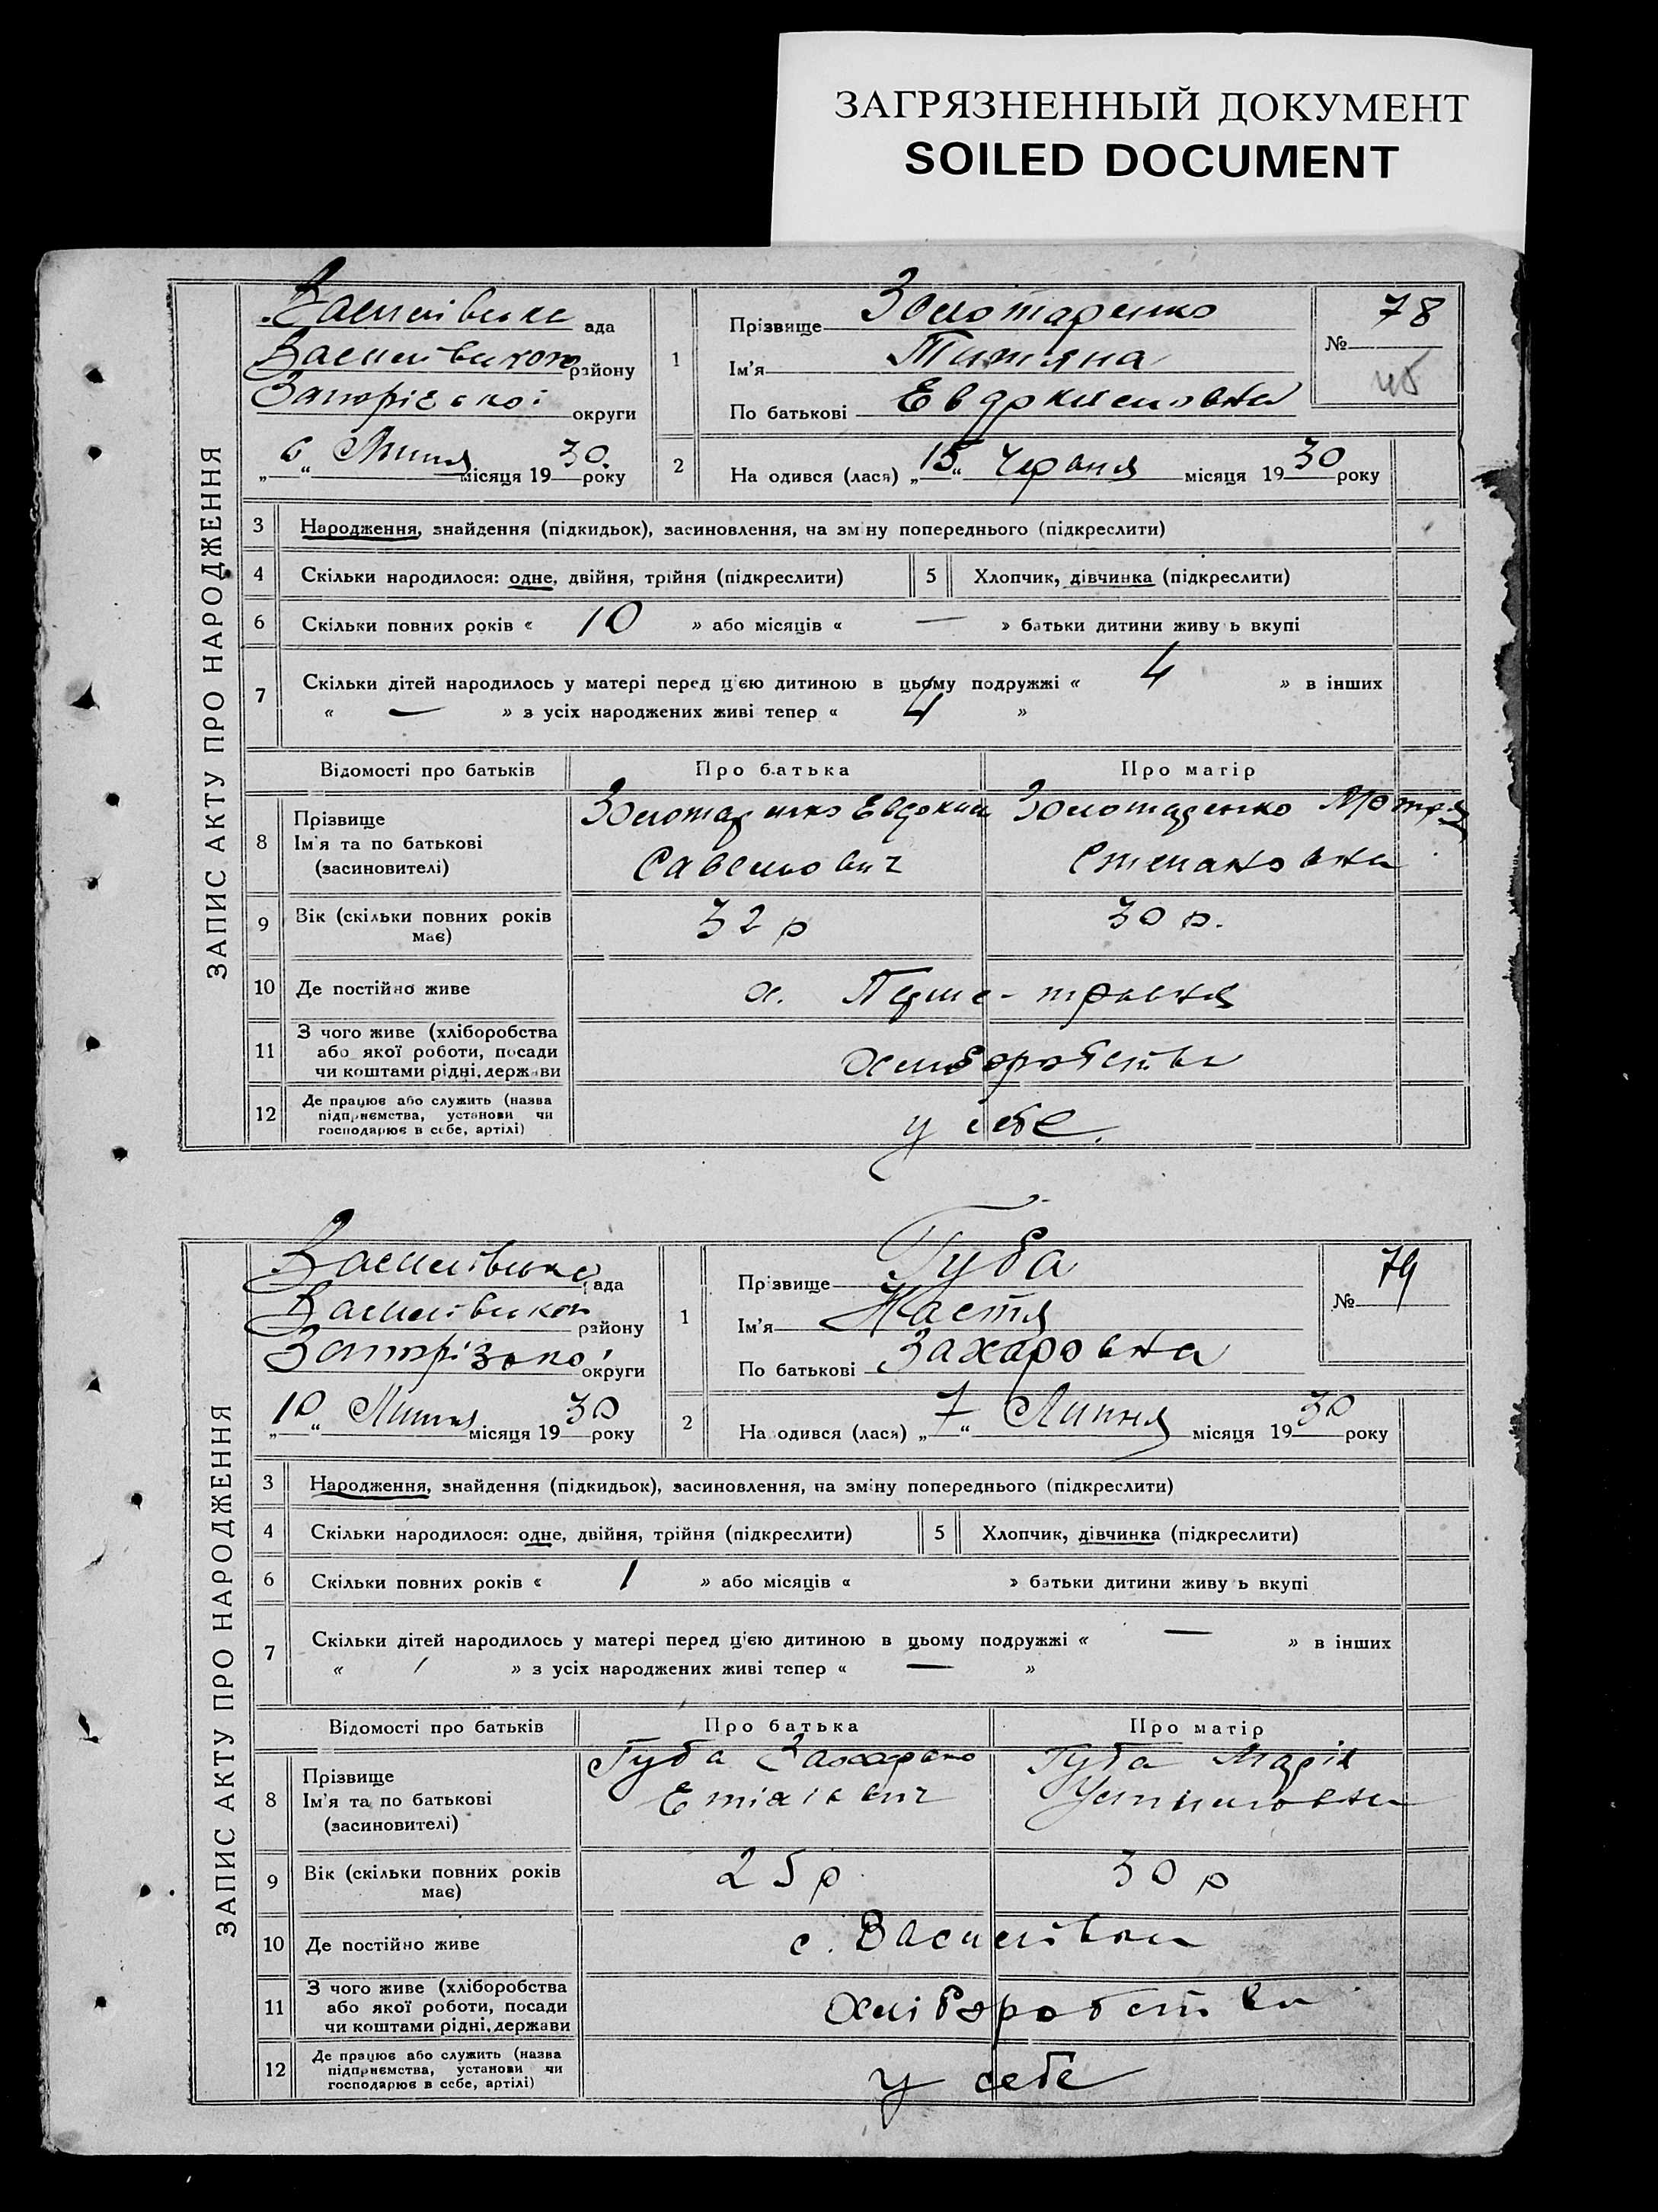 ЗАГРЯЗНЕННЫЙ ДОКУМЕНТ
SOILED DOCUMENT
ЗАПИС АКТУ ПРО НАРОДЖЕННЯ
Василівська ада
Василівського району
Запорізької округи
„6“ Липня місяця 1930 року
1 Прізвище Золотаренко
Ім'я Титяна
По батькові Евдокимовна
№ 78
45
2 На одився (лася) „15“ Червня місяця 1930 року
3 Народження, знайдення (підкидьок), засиновлення, на зм ну попереднього (підкреслити)
4 Скільки народилося: одне, двійня, трійня (підкреслити) 5 Хлопчик, дівчинка (підкреслити)
6 Скільки повних років « 10 » або місяців « — » батьки дитини живу ь вкупі
7 Скільки дітей народилось у матері перед цією дитиною в цьому подружжі « 4 » в інших
« — » з усіх народжених живі тепер « 4 »
Відомості про батьків Про батька Про матір
8 Прізвище
Ім'я та по батькові
(засиновителі)
Золотаренко Евдоким
Савелович
Золотаренко Мотря
Степановна
9 Вік (скільки повних років
має)
32 р 30 р.
10 Де постійно живе х. Перше-травня
11 З чого живе (хліборобства
або якої роботи, посади
чи коштами рідні, держави
хліборобства
12 Де працює або служить (назва
підприємства, установи чи
господарює в себе, артілі)
у себе.
ЗАПИС АКТУ ПРО НАРОДЖЕННЯ
Василівська ада
Василівського району
Запорізької округи
„10“ Липня місяця 1930 року
1 Прізвище Губа
Ім'я Настя
По батькові Захаровна
№ 79
2 На одився (лася) „7“ Липня місяця 1930 року
3 Народження, знайдення (підкидьок), засиновлення, на зміну попереднього (підкреслити)
4 Скільки народилося: одне, двійня, трійня (підкреслити) 5 Хлопчик, дівчинка (підкреслити)
6 Скільки повних років « 1 » або місяців « » батьки дитини живу ь вкупі
7 Скільки дітей народилось у матері перед цією дитиною в цьому подружжі « — » в інших
« / » з усіх народжених живі тепер « — »
Відомості про батьків Про батька Про матір
8 Прізвище
Ім'я та по батькові
(засиновителі)
Губа
Губа Марія
9 Вік (скільки повних років
має)
25 р 30 р
10 Де постійно живе с. Василівка
11 З чого живе (хліборобства
або якої роботи, посади
чи коштами рідні, держави
хліборобства
12 Де працює або служить (назва
підприємства, установи чи
господарює в себе, артілі)
у себе